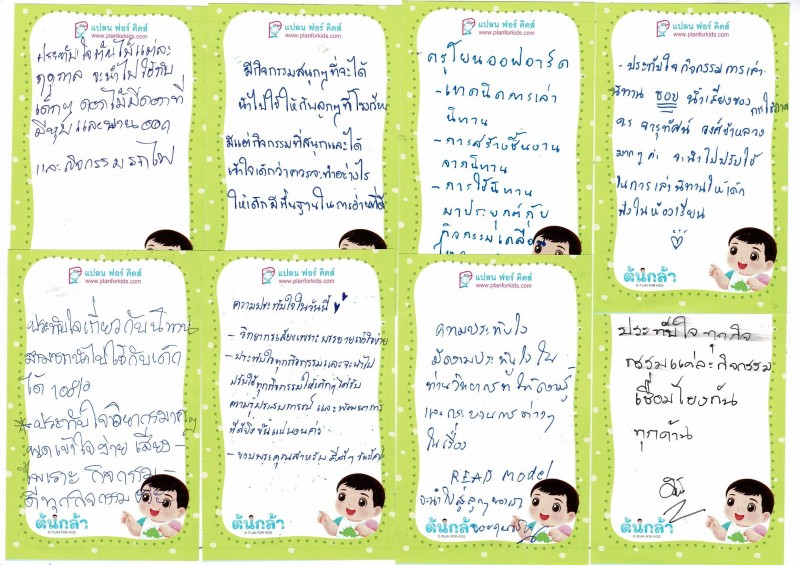 แปลน ฟอร์ คิดส์
www.planforkids.com
ประทับใจต้นไม้แต่ละ
ฤดูกาล จะนำไปใช้กับ
เด็กๆ ดอกไม้มีดอกที่
มีหุบ และบานออก
และกิจกรรมรถไฟ
แปลน ฟอร์ คิดส์
www.planforkids.com
มีกิจกรรมสนุกๆที่จะได้
นำไปใช้ให้กับลูกๆที่โรงเรียน
มีแต่กิจกรรมที่สนุกและได้
เข้าใจเด็กว่าควรจะทำอย่างไร
ให้เด็กมีพื้นฐานในการอ่านที่ดี
แปลน ฟอร์ คิดส์
www.planforkids.com
- เทคนิคการเล่า
นิทาน
- การสร้างชิ้นงาน
จากนิทาน
- การใช้นิทาน
มาประยุกต์กับ
กิจกรรมเคลื่อน
แปลน ฟอร์ คิดส์
www.planforkids.com
- ประทับใจ กิจกรรม การเล่า
นิทาน ชอบ น้ำเสียงของ
ดร จารุทัศน์ วงศ์ข้าหลวง
มากๆ ค่ะ จะนำไปปรับใช้
ในการเล่านิทานให้เด็ก
ฟังในห้องเรียน
ต้นกล้า
แปลน ฟอร์ คิดส์
www.planforkids.com
ประทับใจเกี่ยวกับนิทาน
สามารถนำไปใช้กับเด็ก
ได้ 100%
* ประทับใจวิทยากรมากๆ
พูดเข้าใจง่าย เสียง
ไพเราะ กิจกรรม
ดีทุกกิจกรรม
ต้นกล้า
แปลน ฟอร์ คิดส์
www.planforkids.com
ความประทับใจในวันนี้
- วิทยากรเสียงเพราะ บรรยายเข้าใจง่าย
- ประทับใจทุกกิจกรรมและจะนำไป
ปรับใช้ทุกกิจกรรมให้เด็กๆได้รับ
ความรู้ประสบการณ์ และพัฒนาการ
ที่ดียิ่งขึ้นแน่นอนค่ะ
- ขอบพระคุณสำหรับ
ต้นกล้า
แปลน ฟอร์ คิดส์
www.planforkids.com
ความประทับใจ
มีความประทับใจใน
ท่านวิทยากรที่ให้ความรู้
และกระบวนการต่างๆ
ในเรื่อง
READ Model
จะนำไปสู่ลูกๆของเรา
ต้นกล้า
ประทับใจ ทุกกิจ
กรรมแต่ละกิจกรรม
เชื่อมโยงกัน
ทุกด้าน
ต้นกล้า